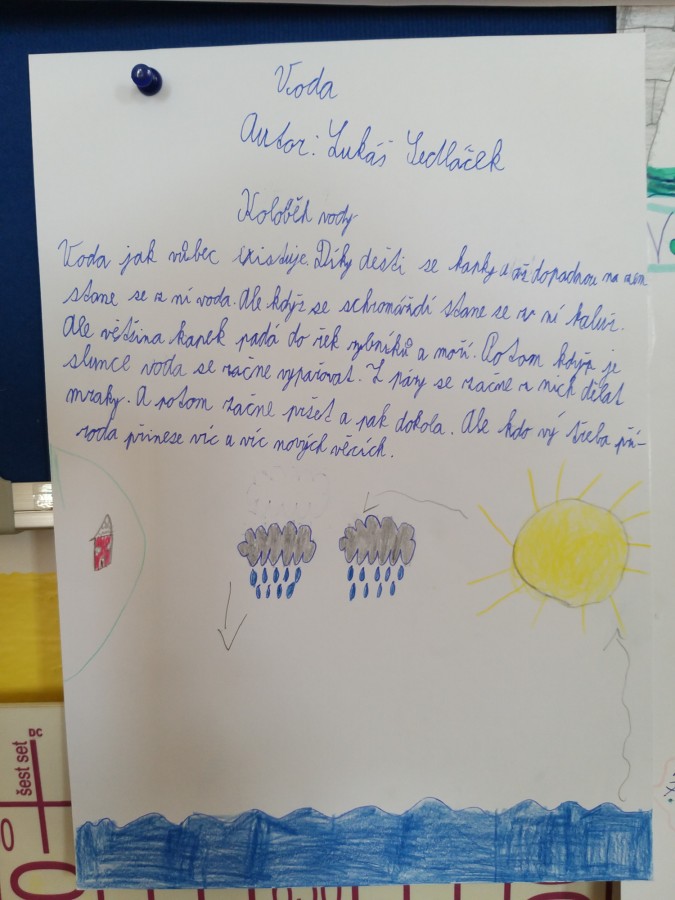 Voda
Autor: Lukáš Sedláček
Koloběh vody
Voda jak vůbec existuje. Díky dešti se kapky a až dopadnou na zem
stane se z ní voda. Ale když se schromáždí stane se z ní kaluž.
Ale většina kapek padá do řek rybníků a moří. Potom když je
slunce voda se začne vypařovat. Z páry se začne z nich dělat
mraky. A potom začne pršet a pak dokola. Ale kdo ví třeba pří-
roda přinese víc a víc nových věcích.
šest set
DC
0